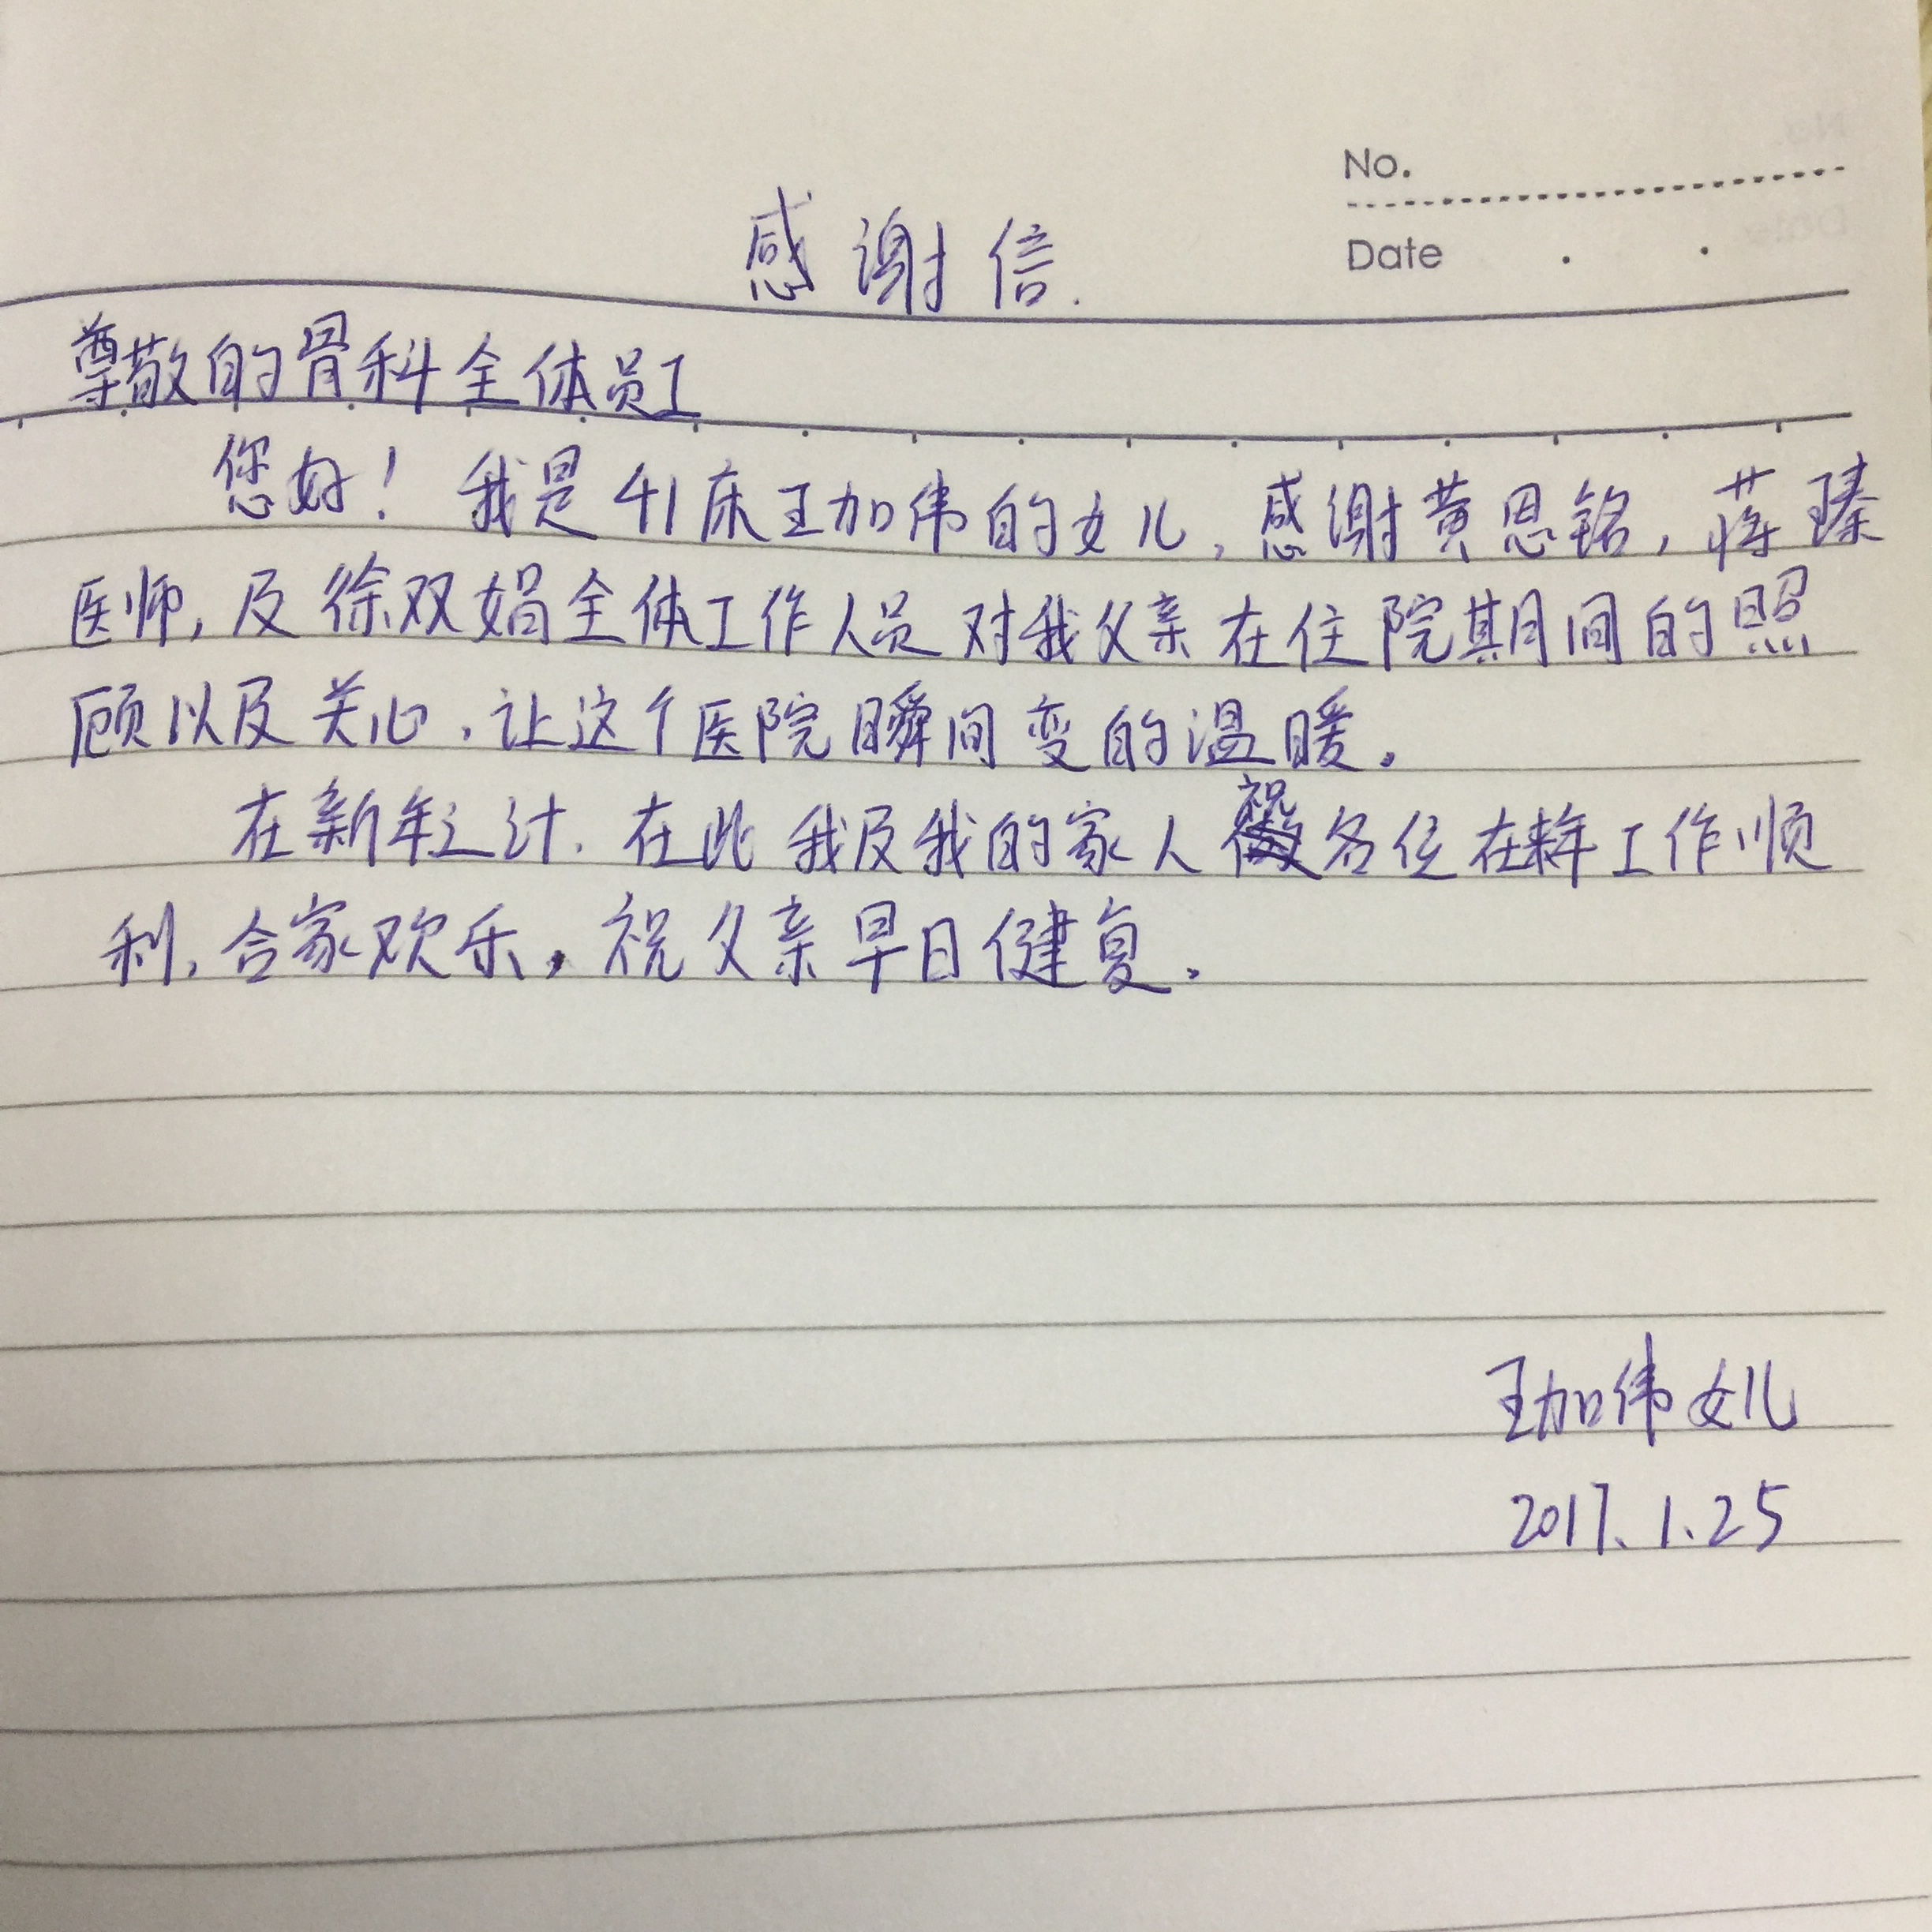 No.
Date
感谢信.
尊敬的骨科全体员工
您好！我是41床王加伟的女儿,感谢黄恩铭,蒋臻
医师,及徐双娟全体工作人员对我父亲在住院期间的照
顾以及关心,让这个医院瞬间变的温暖。
在新年之计.在此我及我的家人祝各位在来年工作顺
利,合家欢乐,祝父亲早日健复。
王加伟女儿
2017.1.25